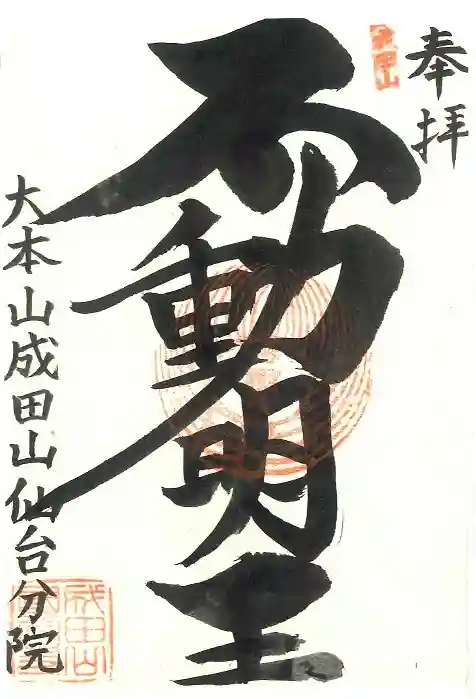 奉拝
成田山
不動明王
大本山成田山仙台分院